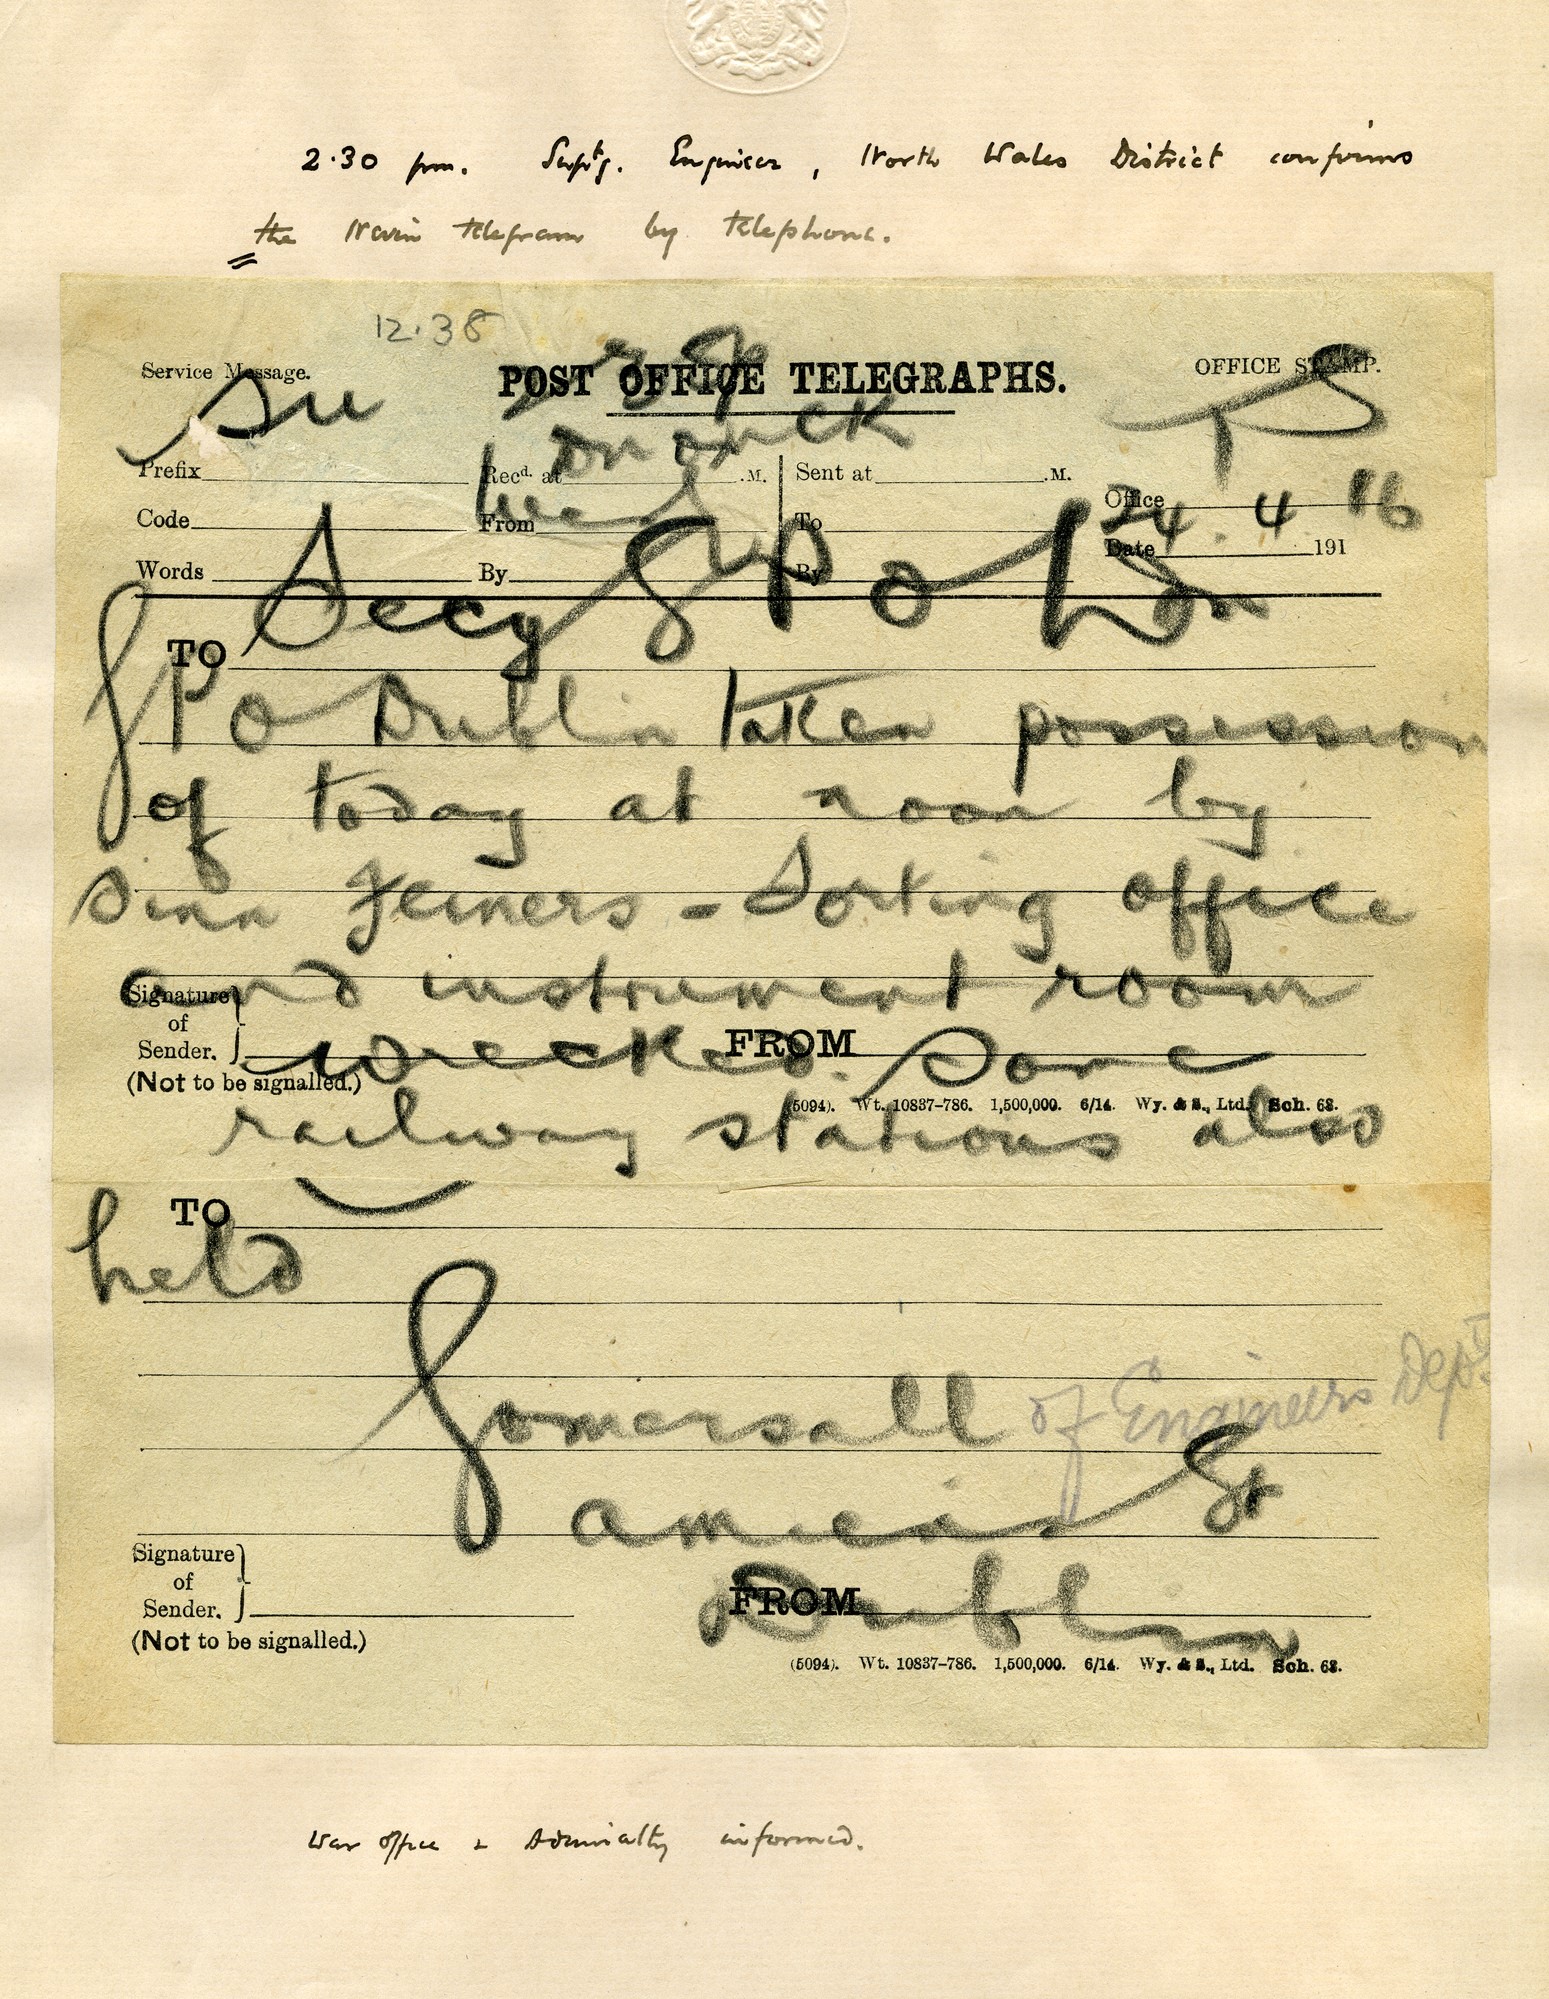 2.30 pm. Suptg. Engineer, North Wales District confirms
the Nevin telegram by telephone.
12.38
Service Message.
POST OFFICE TELEGRAPHS.
OFFICE STAMP.
Su
Prefix
Recd. at .M.
Sent at .M.
Office
Code
From
To
24.4 16
Date 191
Words
By
By
TO Secy GPO Ldn
GPO Dublin taken possession
of today at noon by
Sinn Feiners - Sorting office
and instrument room
Signature
of
Sender.
(Not to be signalled.)
FROM
wrecked. Some
(5094). Wt. 10837-786. 1,500,000. 6/14. Wy. & S., Ltd. Sch. 68.
railway stations also
TO
held
Gomersall of Engineers Dept.
Amiens St
Signature
of
Sender.
(Not to be signalled.)
FROM
Dublin
(5094). Wt. 10837-786. 1,500,000. 6/14. Wy. & S., Ltd. Sch. 68.
War Office & Admiralty informed.